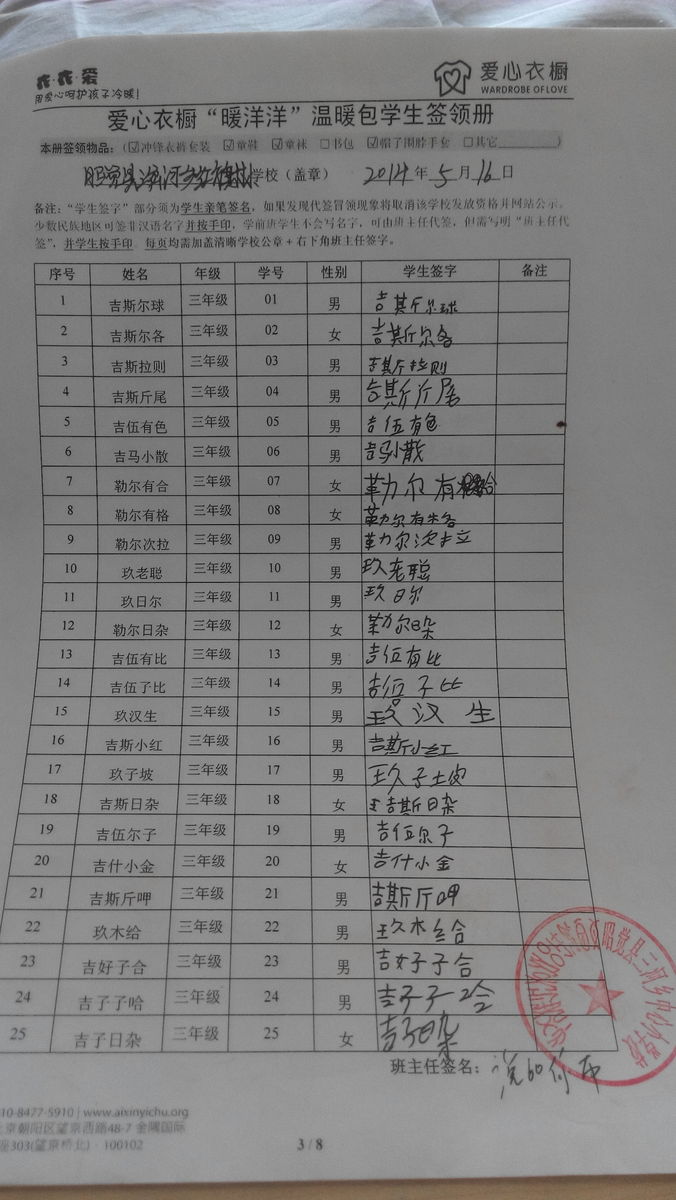 衣·衣·爱
用爱心呵护孩子冷暖!
爱心衣橱
WARDROBE OF LOVE
爱心衣橱“暖洋洋”温暖包学生签领册
本册签领物品:(☑冲锋衣裤套装 ☑童鞋 ☑童袜 □书包 ☑帽子围脖手套 □其它________)
学校(盖章) 2014年5月16日
备注:“学生签字”部分须为学生亲笔签名,如果发现代签冒领现象将取消该学校发放资格并网站公示。
少数民族地区可签非汉语名字并按手印,学前班学生不会写名字,可由班主任代签,但需写明“班主任代
签”,并学生按手印 每页均需加盖清晰学校公章+右下角班主任签字。
序号 姓名 年级 学号 性别 学生签字 备注
1 吉斯尔球 三年级 01 男 吉斯尔球
2 吉斯尔各 三年级 02 女 吉斯尔各
3 吉斯拉则 三年级 03 男 吉斯拉则
4 吉斯斤尾 三年级 04 男 吉斯斤尾
5 吉伍有色 三年级 05 男 吉伍有色
6 吉马小散 三年级 06 男 吉马小散
7 勒尔有合 三年级 07 女 勒尔有合
8 勒尔有格 三年级 08 女 勒尔有格
9 勒尔次拉 三年级 09 男 勒尔次拉
10 玖老聪 三年级 10 男 玖老聪
11 玖日尔 三年级 11 男 玖日尔
12 勒尔日杂 三年级 12 女 勒尔日杂
13 吉伍有比 三年级 13 男 吉伍有比
14 吉伍子比 三年级 14 男 吉伍子比
15 玖汉生 三年级 15 男 玖汉生
16 吉斯小红 三年级 16 男 吉斯小红
17 玖子坡 三年级 17 男 玖子坡
18 吉斯日杂 三年级 18 女 吉斯日杂
19 吉伍尔子 三年级 19 男 吉伍尔子
20 吉什小金 三年级 20 女 吉什小金
21 吉斯斤呷 三年级 21 男 吉斯斤呷
22 玖木给 三年级 22 男 玖木给
23 吉好子合 三年级 23 男 吉好子合
24 吉子子哈 三年级 24 男 吉子子哈
25 吉子日杂 三年级 25 女 吉子日杂
昭觉县三河乡中心小学校
班主任签名:
10-8477-5910 | www.aixinyichu.org
京朝阳区望京西路48-7 金隅国际
303(望京桥北) · 100102
3 / 8